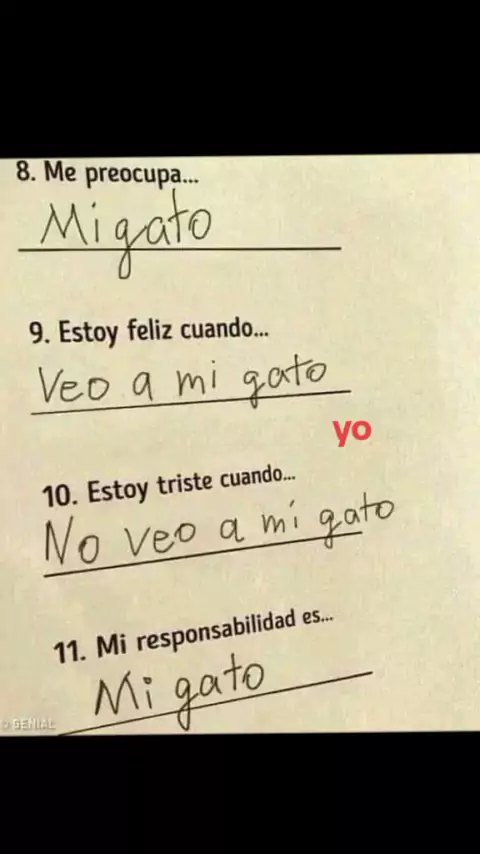 8. Me preocupa...
Mi gato
9. Estoy feliz cuando...
Veo a mi gato
yo
10. Estoy triste cuando...
No veo a mi gato
11. Mi responsabilidad es...
Mi gato
© GENIAL